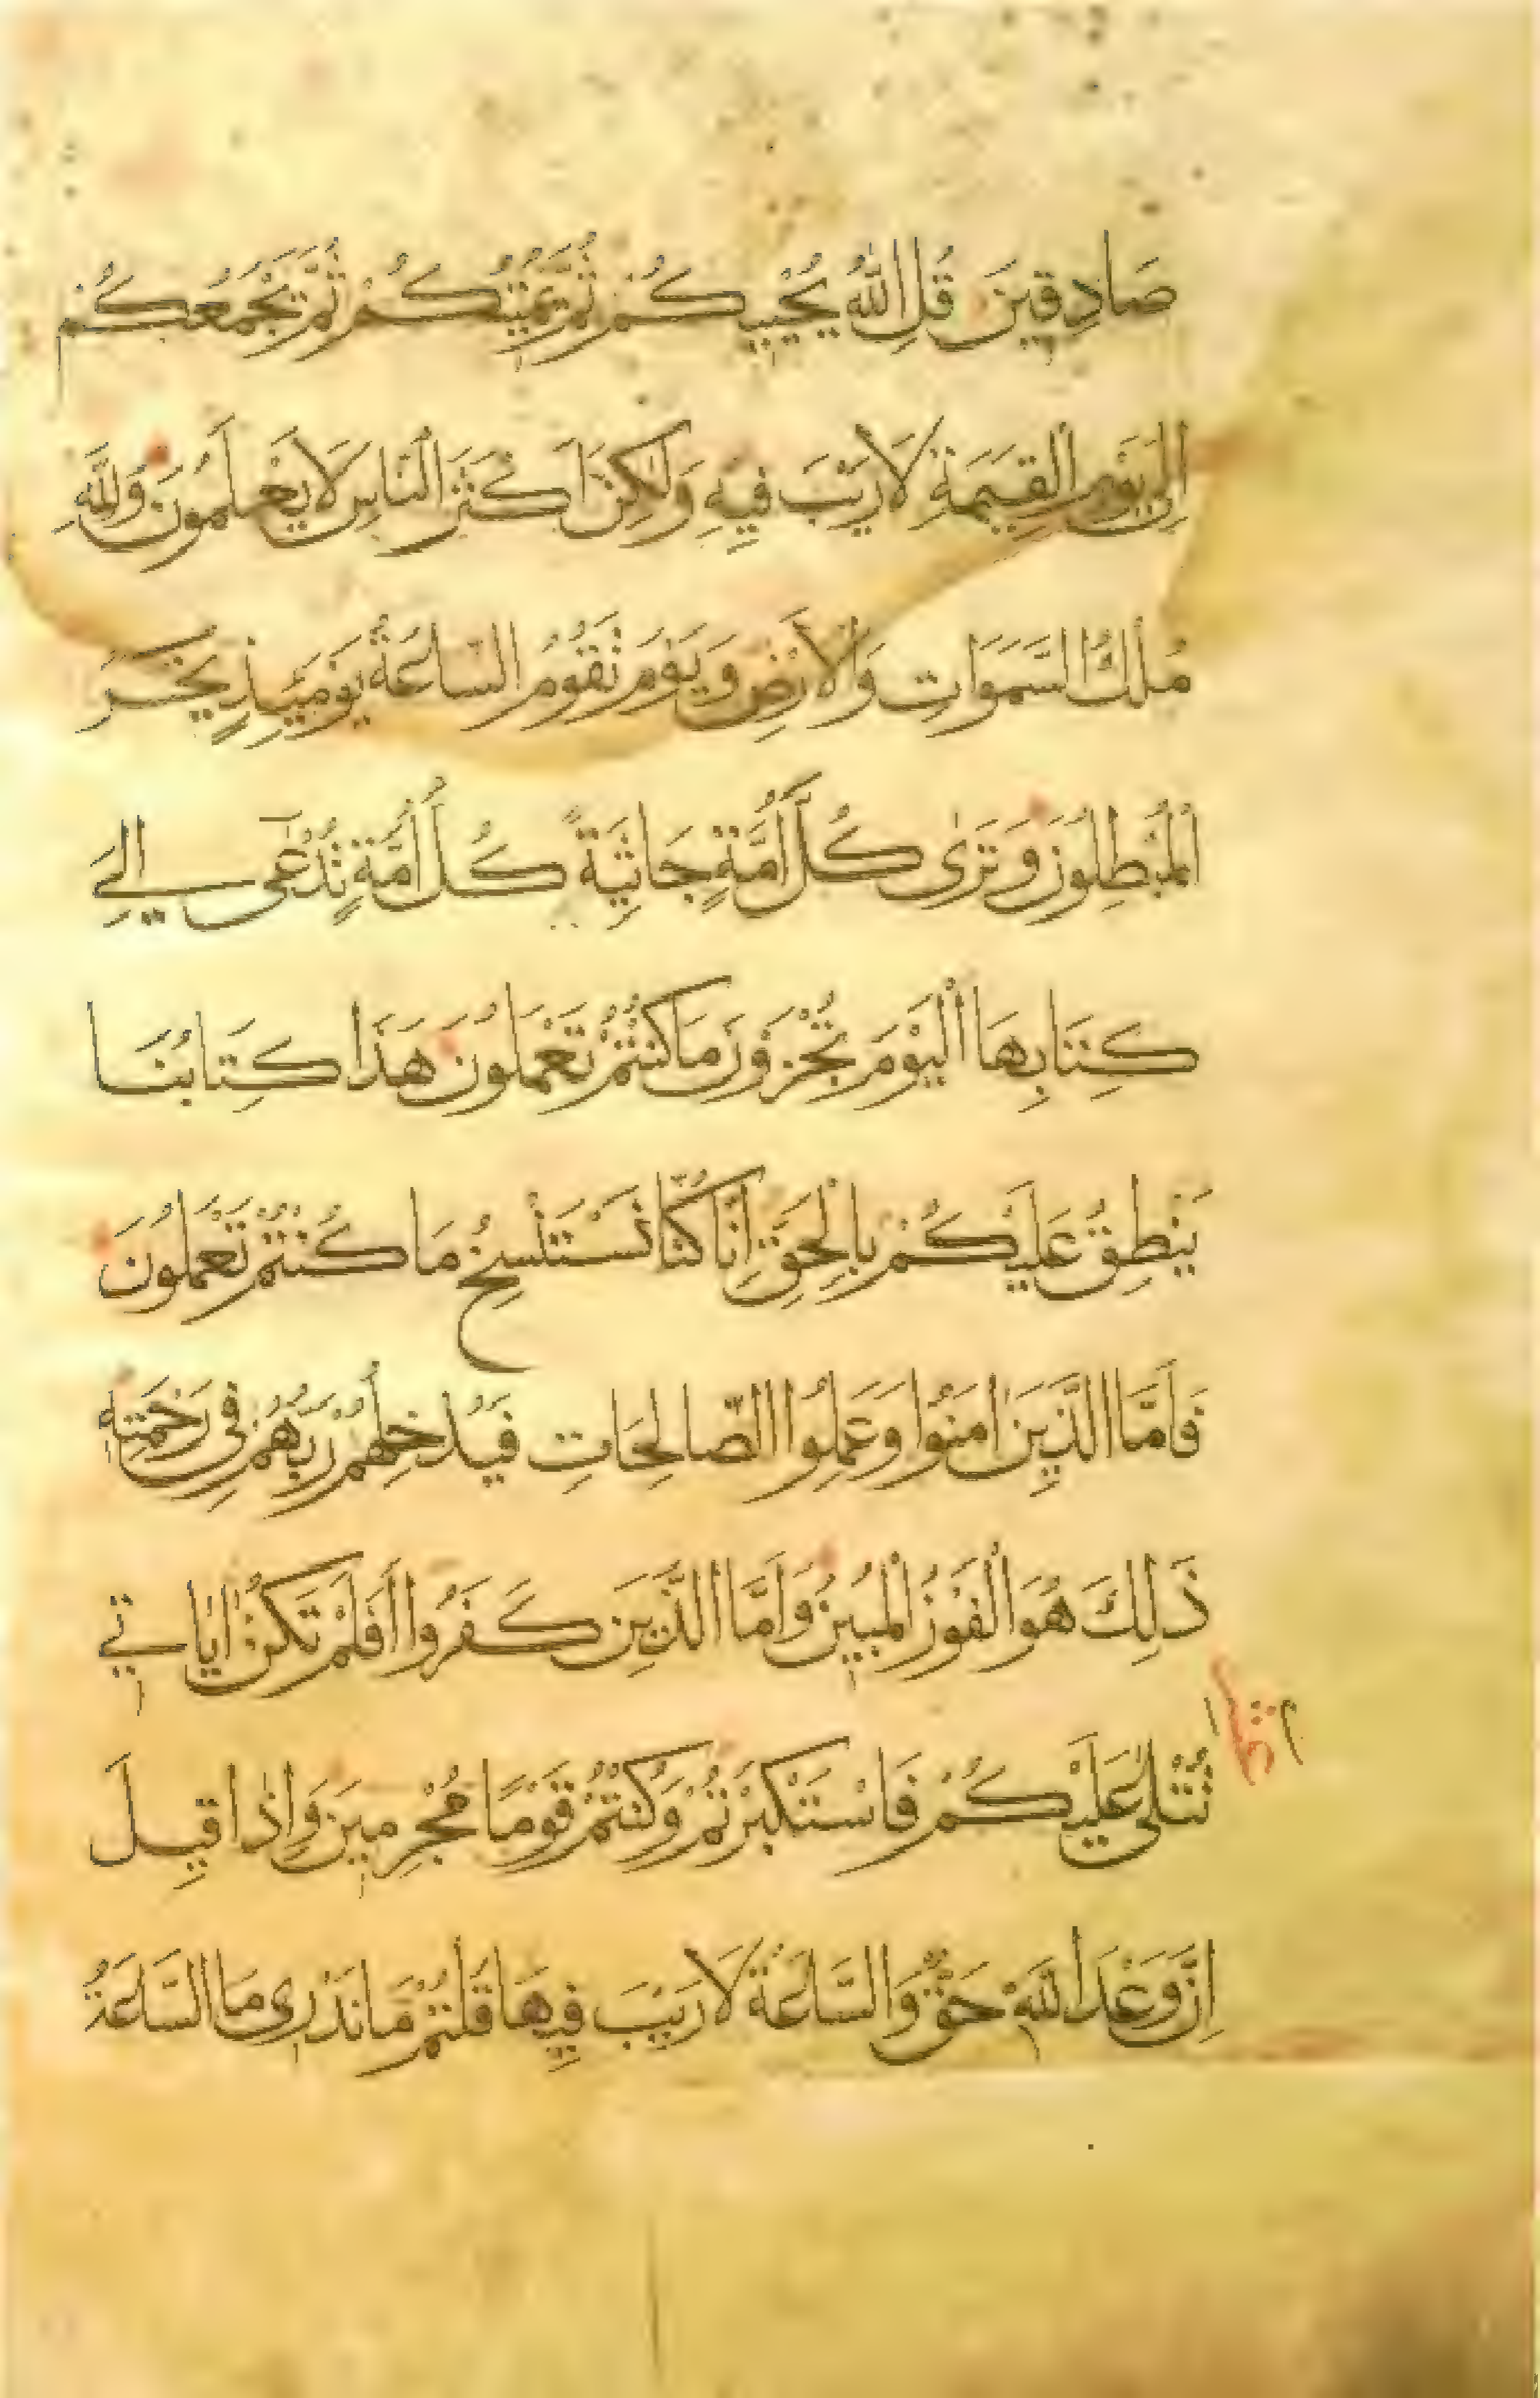 صَادِقِينَ قُلِ اللّٰهُ يُحْيِيكُمْ ثُمَّ يُمِيتُكُمْ ثُمَّ يَجْمَعُكُمْ
اِلٰى يَوْمِ الْقِيٰمَةِ لَا رَيْبَ فِيهِ وَلٰكِنَّ اَكْثَرَ النَّاسِ لَا يَعْلَمُونَ وَلِلّٰهِ
مُلْكُ السَّمَوَاتِ وَالْاَرْضِ وَيَوْمَ تَقُومُ السَّاعَةُ يَوْمَئِذٍ يَخْسَرُ
الْمُبْطِلُونَ وَتَرٰى كُلَّ اُمَّةٍ جَاثِيَةً كُلُّ اُمَّةٍ تُدْعٰى اِلٰى
كِتَابِهَا الْيَوْمَ تُجْزَوْنَ مَا كُنْتُمْ تَعْمَلُونَ هَذَا كِتَابُنَا
يَنْطِقُ عَلَيْكُمْ بِالْحَقِّ اِنَّا كُنَّا نَسْتَنْسِخُ مَا كُنْتُمْ تَعْمَلُونَ
فَاَمَّا الَّذِينَ اٰمَنُوا وَعَمِلُوا الصَّالِحَاتِ فَيُدْخِلُهُمْ رَبُّهُمْ فِي رَحْمَتِهِ
ذَلِكَ هُوَ الْفَوْزُ الْمُبِينُ وَاَمَّا الَّذِينَ كَفَرُوا اَفَلَمْ تَكُنْ اٰيَاتِي
تُتْلٰى عَلَيْكُمْ فَاسْتَكْبَرْتُمْ وَكُنْتُمْ قَوْمًا مُجْرِمِينَ وَاِذَا قِيلَ
اِنَّ وَعْدَ اللّٰهِ حَقٌّ وَالسَّاعَةُ لَا رَيْبَ فِيهَا قُلْتُمْ مَا نَدْرِي مَا السَّاعَةُ